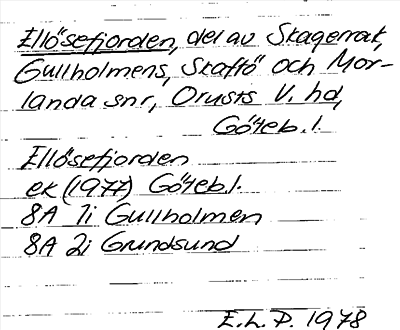 Ellösefjorden, del av Skagerrak,
Gullholmens, Skaftö och Mor-
landa snr, Orusts V. hd,
Göteb. l.
Ellösefjorden
ek (1977) Göteb. l.
8A 1i Gullholmen
8A 2i Grundsund
E.L.P. 1978